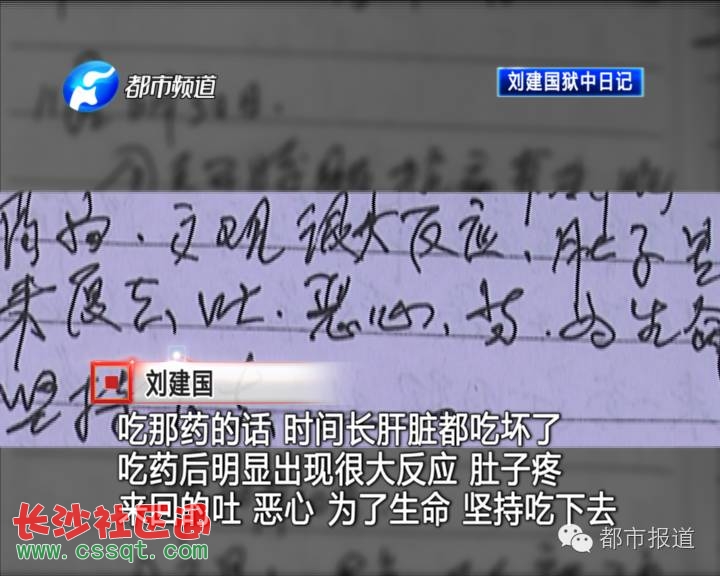 都市频道
刘建国狱中日记
药物、文现很大反应、肚子是
来 吐、恶心、 为生命
坚持
刘建国
吃那药的话 时间长肝脏都吃坏了
吃药后明显出现很大反应 肚子疼
来回的吐 恶心 为了生命 坚持吃下去
长沙社区通
www.cssqt.com
都市报道